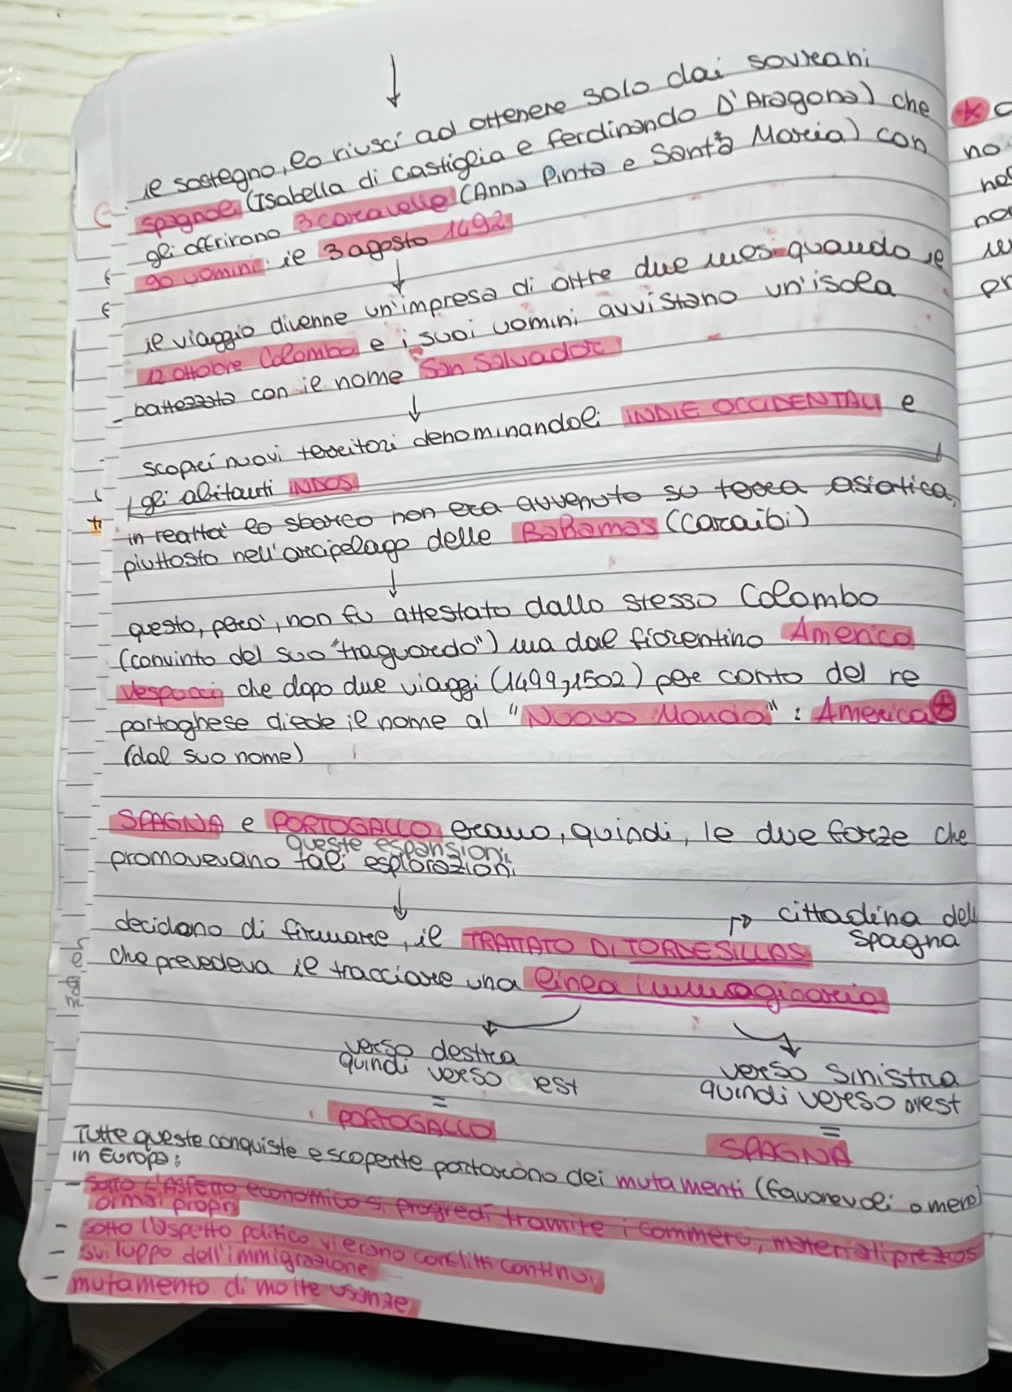 il sostegno, lo riuscì ad ottenere solo dai sovrani
spagnoli (Isabella di Castiglia e Ferdinando D'Aragona) che
gli offrirono 3 caravelle (Anna Pinta e Santa Maria) con
90 uomini: il 3 agosto 1492
il viaggio divenne un'impresa di oltre due mesi quando il
12 ottobre Colombo e i suoi uomini avvistano un'isola
battezzata con il nome San Salvador
scoprì nuovi territori denominandoli INDIE OCCIDENTALI e
gli abitanti INDIOS
in realtà lo sbarco non era avvenuto su terra asiatica,
piuttosto nell'arcipelago delle Bahamas (Caraibi)
questo, però, non fu attestato dallo stesso Colombo
(convinto del suo "traguardo") ma dal fiorentino Americo
Vespucci che dopo due viaggi (1499, 1502) per conto del re
portoghese diede il nome al "Nuovo Mondo": America
(dal suo nome)
SPAGNA e PORTOGALLO erano, quindi, le due forze che
queste espansioni
promovevano tali esplorazioni
decidono di firmare, il TRATTATO DI TORDESILLAS
cittadina della
Spagna
che prevedeva il tracciare una linea immaginaria
verso destra
quindi verso est
=
PORTOGALLO
verso sinistra
quindi verso ovest
=
SPAGNA
Tutte queste conquiste e scoperte portarono dei mutamenti (favorevoli o meno)
in Europa:
- sotto l'ASPETTO economico si progredì tramite i commerci, materiali preziosi
ormai propri
- sotto l'aspetto politico vi erano conflitti continui
- sviluppo dell'immigrazione
- mutamento di molte usanze